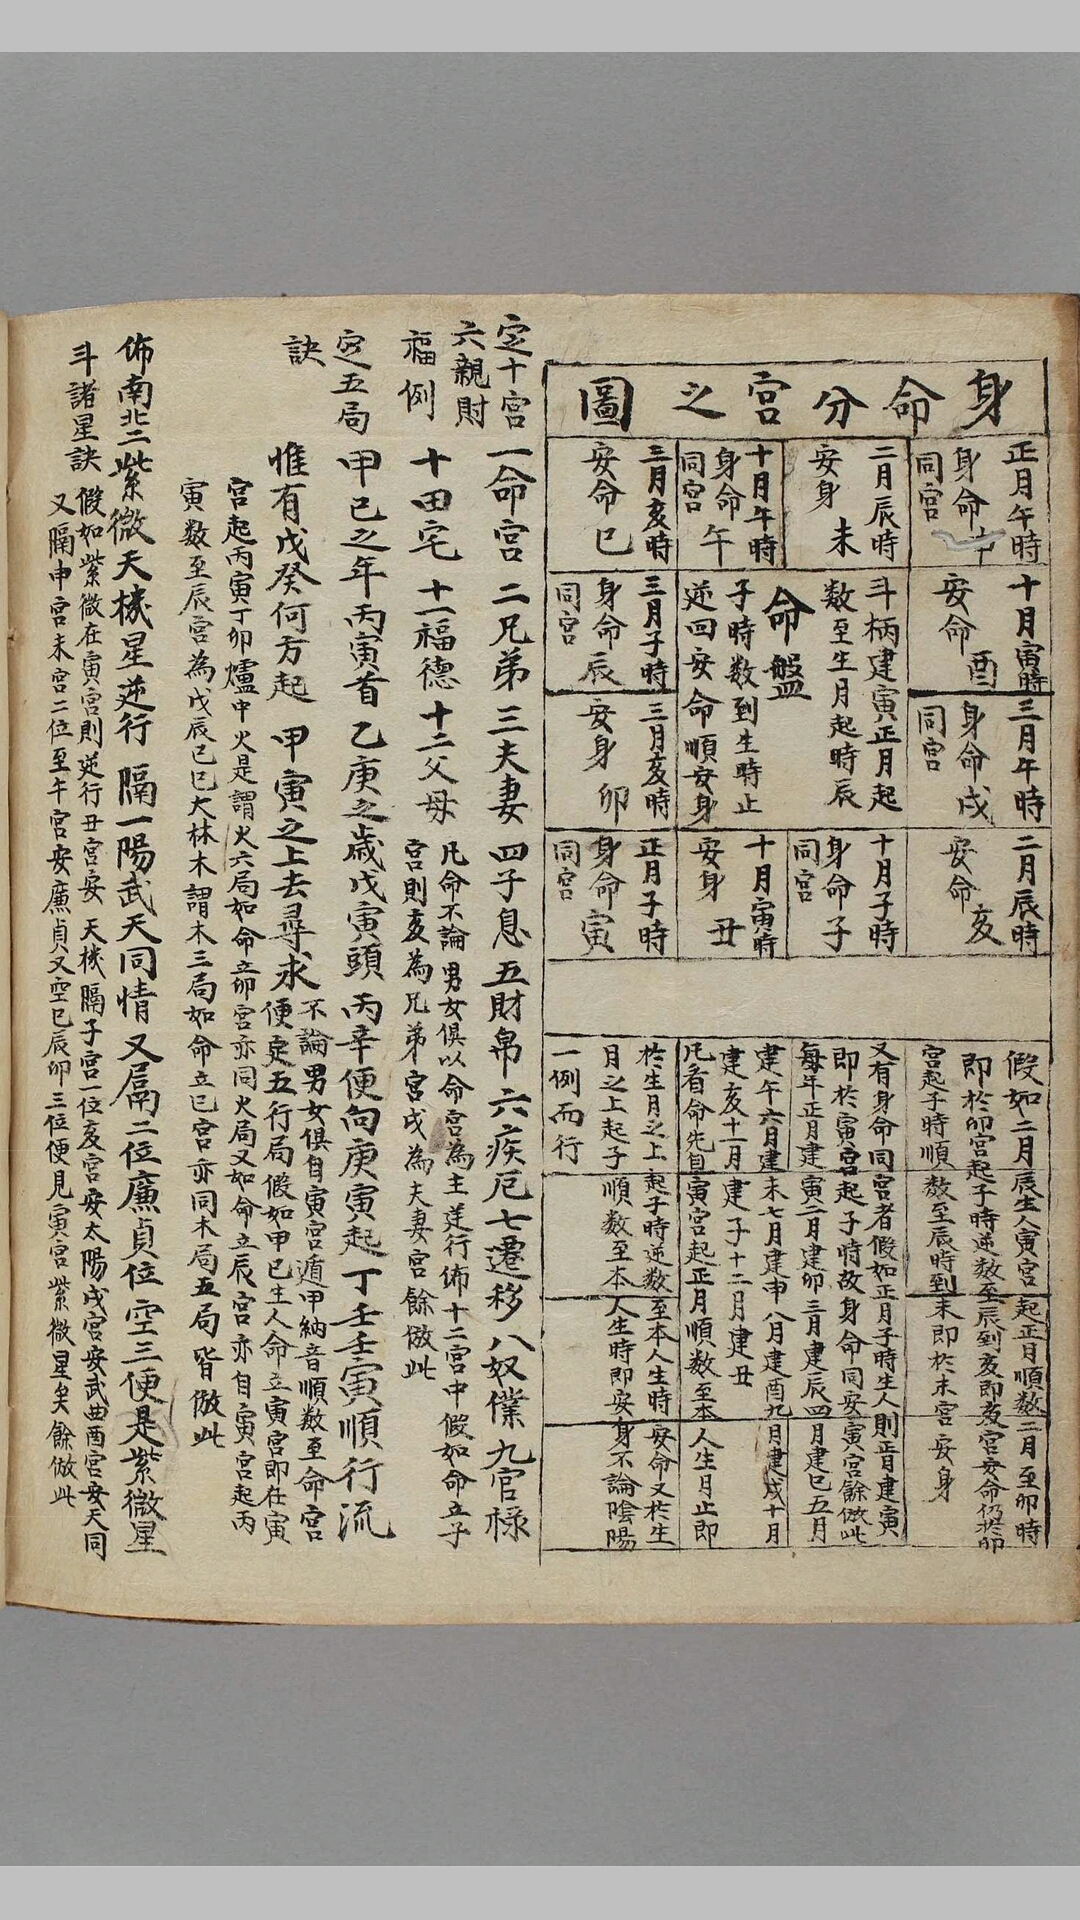 身命分宮之圖
正月午時
身命申
同宮
二月辰時
安身未
十月午時
身命午
同宮
三月亥時
安命巳
十月寅時
安命酉
斗柄建寅正月起
數至生月起時辰
命盤
子時數到生時止
逆回安命順安身
三月子時
身命辰
同宮
三月午時
身命戌
同宮
三月亥時
安身卯
二月辰時
安命亥
十月子時
身命子
同宮
十月寅時
安身丑
正月子時
身命寅
同宮
假如二月辰生人寅宮起正月順數二月至卯時
即於卯宮起子時逆數至辰到亥即亥宮安命仍於卯
宮起子時順數至辰時到未即於未宮安身
又有身命同宮者假如正月子時生人則正月建寅
即於寅宮起子時故身命同安寅宮餘倣此
每年正月建寅二月建卯三月建辰四月建巳五月
建午六月建未七月建申八月建酉九月建戌十月
建亥十一月建子十二月建丑
凡看命先自寅宮起正月順數至本人生月止即
於生月之上起子時逆數至本人生時安命又於生
月之上起子順數至本人生時即安身不論陰陽
一例而行
定十宮
六親財
福例
一命宮 二兄弟 三夫妻 四子息 五財帛 六疾厄 七遷移 八奴僕 九官祿
十田宅 十一福德 十二父母
凡命不論男女俱以命宮為主逆行佈十二宮中假如命立子
宮則亥為兄弟宮戌為夫妻宮餘倣此
定五局
訣
甲己之年丙寅首 乙庚之歲戊寅頭 丙辛便向庚寅起 丁壬壬寅順行流
惟有戊癸何方起 甲寅之上去尋求
不論男女俱自寅宮遁甲納音順數至命宮
便定五行局假如甲己生人命立寅宮即在寅
宮起丙寅丁卯爐中火是謂火六局如命立卯宮亦同火局又如命立辰宮亦自寅宮起丙
寅數至辰宮為戊辰己巳大林木謂木三局如命立巳宮亦同木局五局皆倣此
佈南北二
斗諸星訣
紫微天機星逆行 隔一陽武天同情 又隔二位廉貞位 空三便是紫微星
假如紫微在寅宮則逆行丑宮安天機隔子宮一位亥宮安太陽戌宮安武曲酉宮安天同
又隔申宮未宮二位至午宮安廉貞又空巳辰卯三位便見寅宮紫微星矣餘倣此